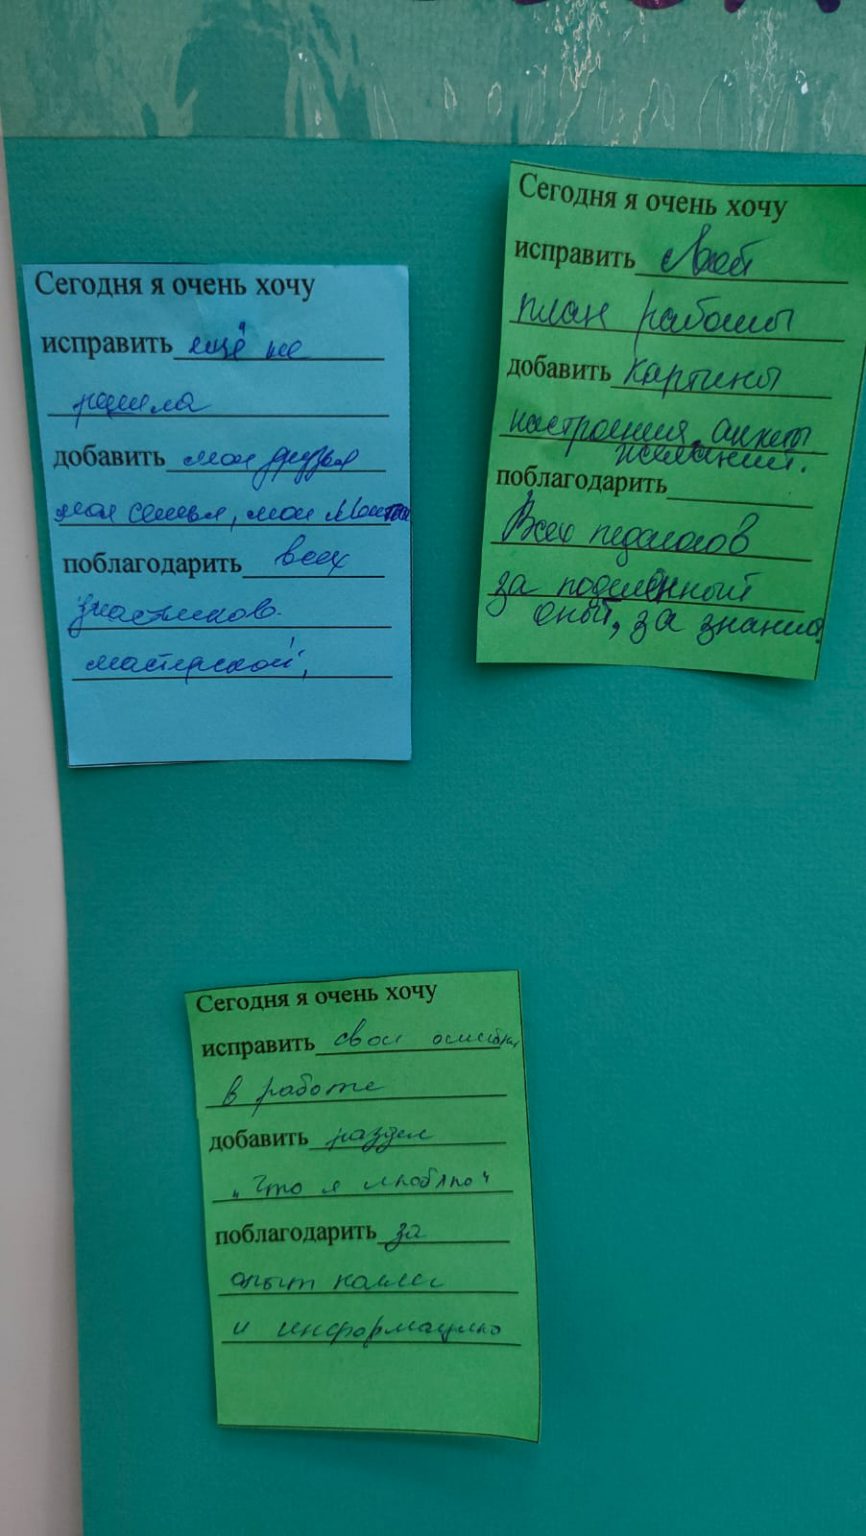 Сегодня я очень хочу
исправить ещё не
решила
добавить мои друзья
моя семья, мои мечты
поблагодарить всех
участников
мастерской,
Сегодня я очень хочу
исправить свой
план работы
добавить картины
настроения, анкеты
желаний.
поблагодарить
Всех педагогов
за поделённый
опыт, за знания.
Сегодня я очень хочу
исправить свои ошибки
в работе
добавить раздел
"Что я люблю"
поблагодарить за
опыт коллег
и информацию